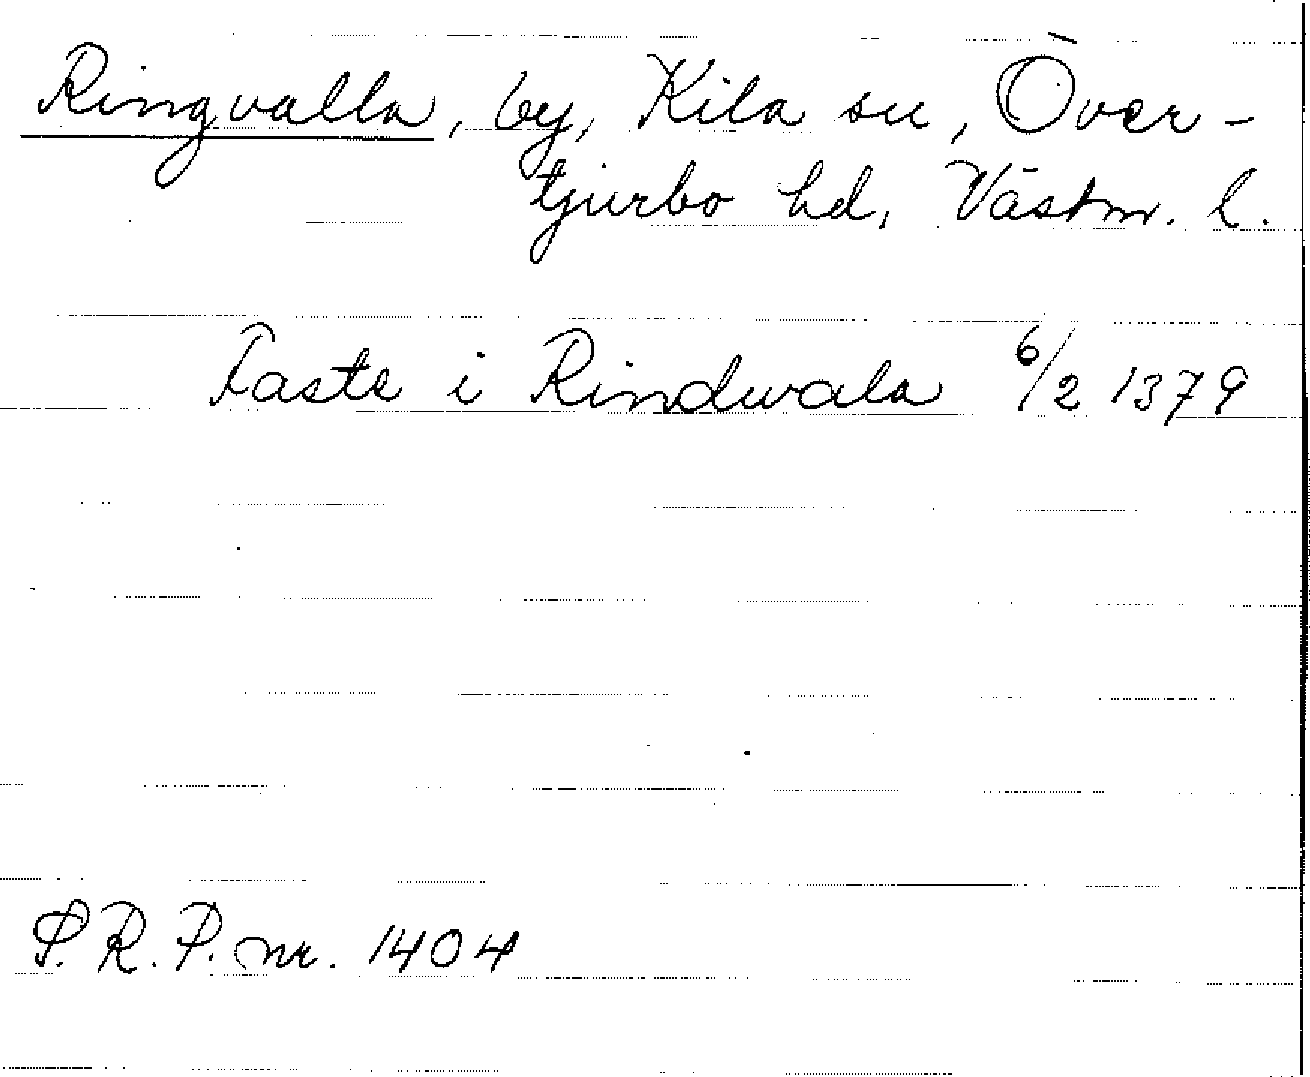 Ringvalla, by, Kila sn, Över-
tjurbo hd, Västm. l.
Faste i Rindwala 6/2 1379
S.R.P. nr. 1404